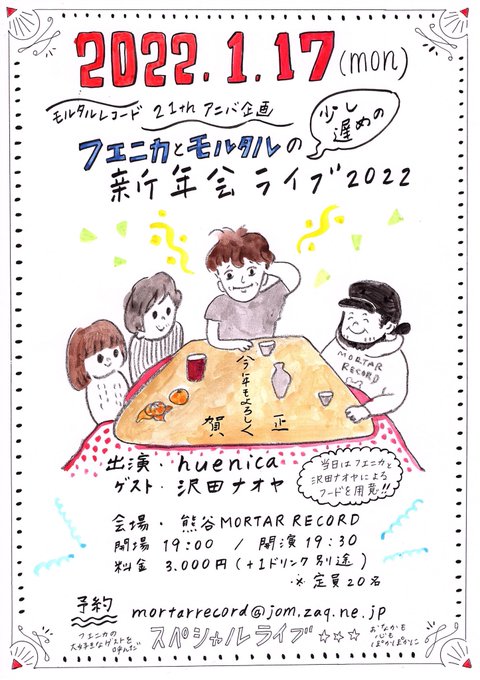 2022.1.17(mon)
モルタルレコード 21th アニバ企画
少し
遅めの
フエニカとモルタルの
新年会ライブ2022
MORTAR
RECORD
今年もよろしく
賀
正
出演・huenica
ゲスト・沢田ナオヤ
当日はフエニカと
沢田ナオヤによる
フードを用意!!
会場・熊谷MORTAR RECORD
開場 19:00 / 開演 19:30
料金 3.000円(+1ドリンク別途)
※定員20名
予約 mortarrecord@jom.zaq.ne.jp
フエニカの
大好きなゲストを
呼んだ
スペシャルライブ☆☆☆
おなかも
心も
ぽかぽかに